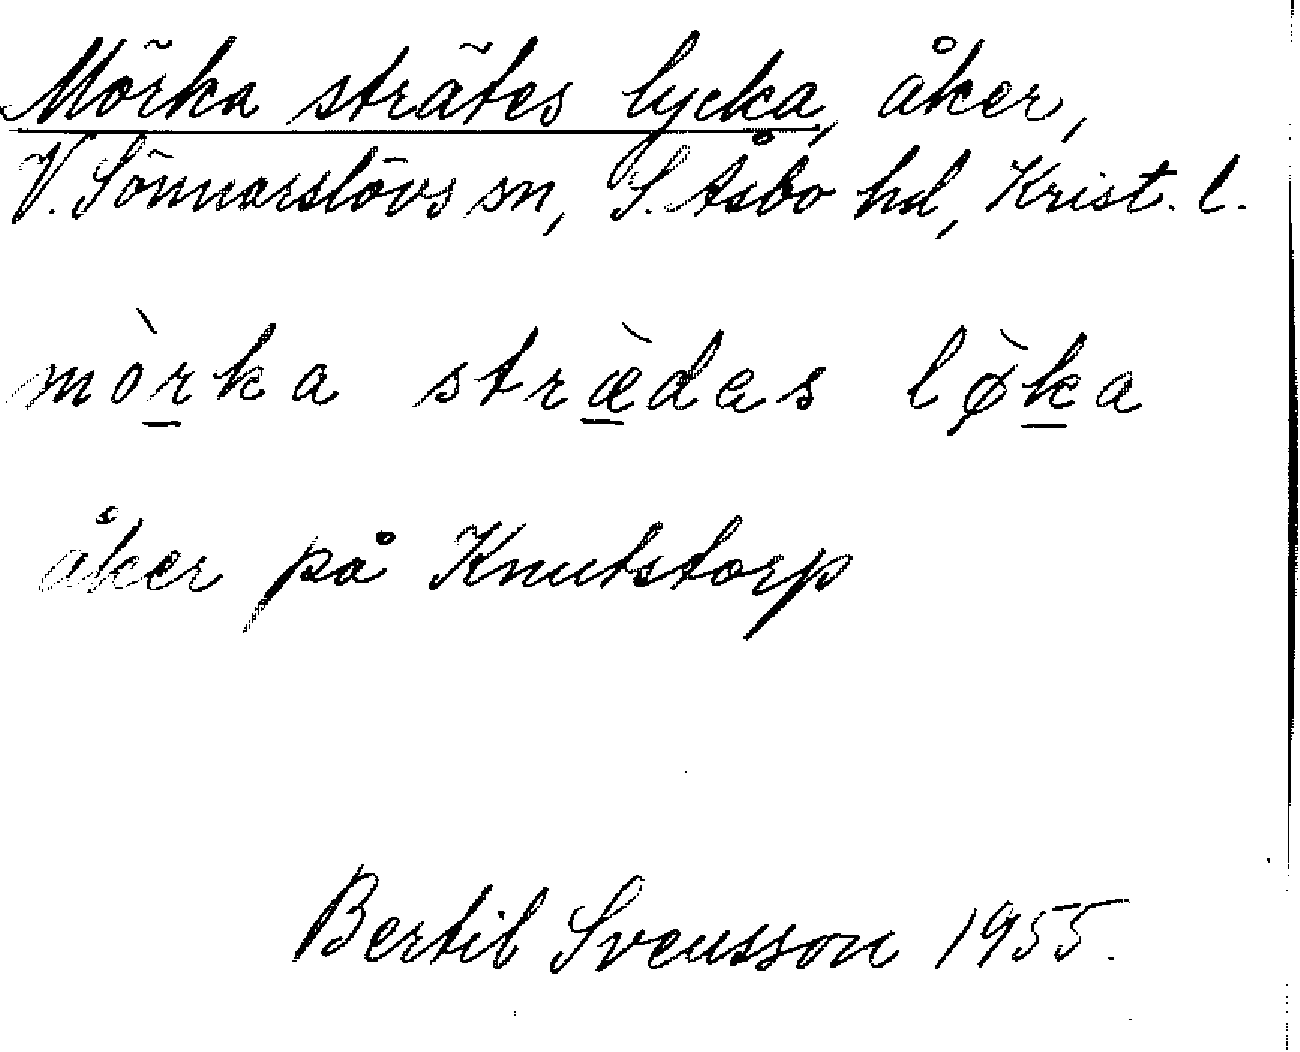 Mörka strätes lycka, åker,
V. Sönnarslövs sn, S. Åsbo hd, Krist. l.
mòr̲ka stræ̲̀das lø̀k̲a
åker på Knutstorp
Bertil Svensson 1955.